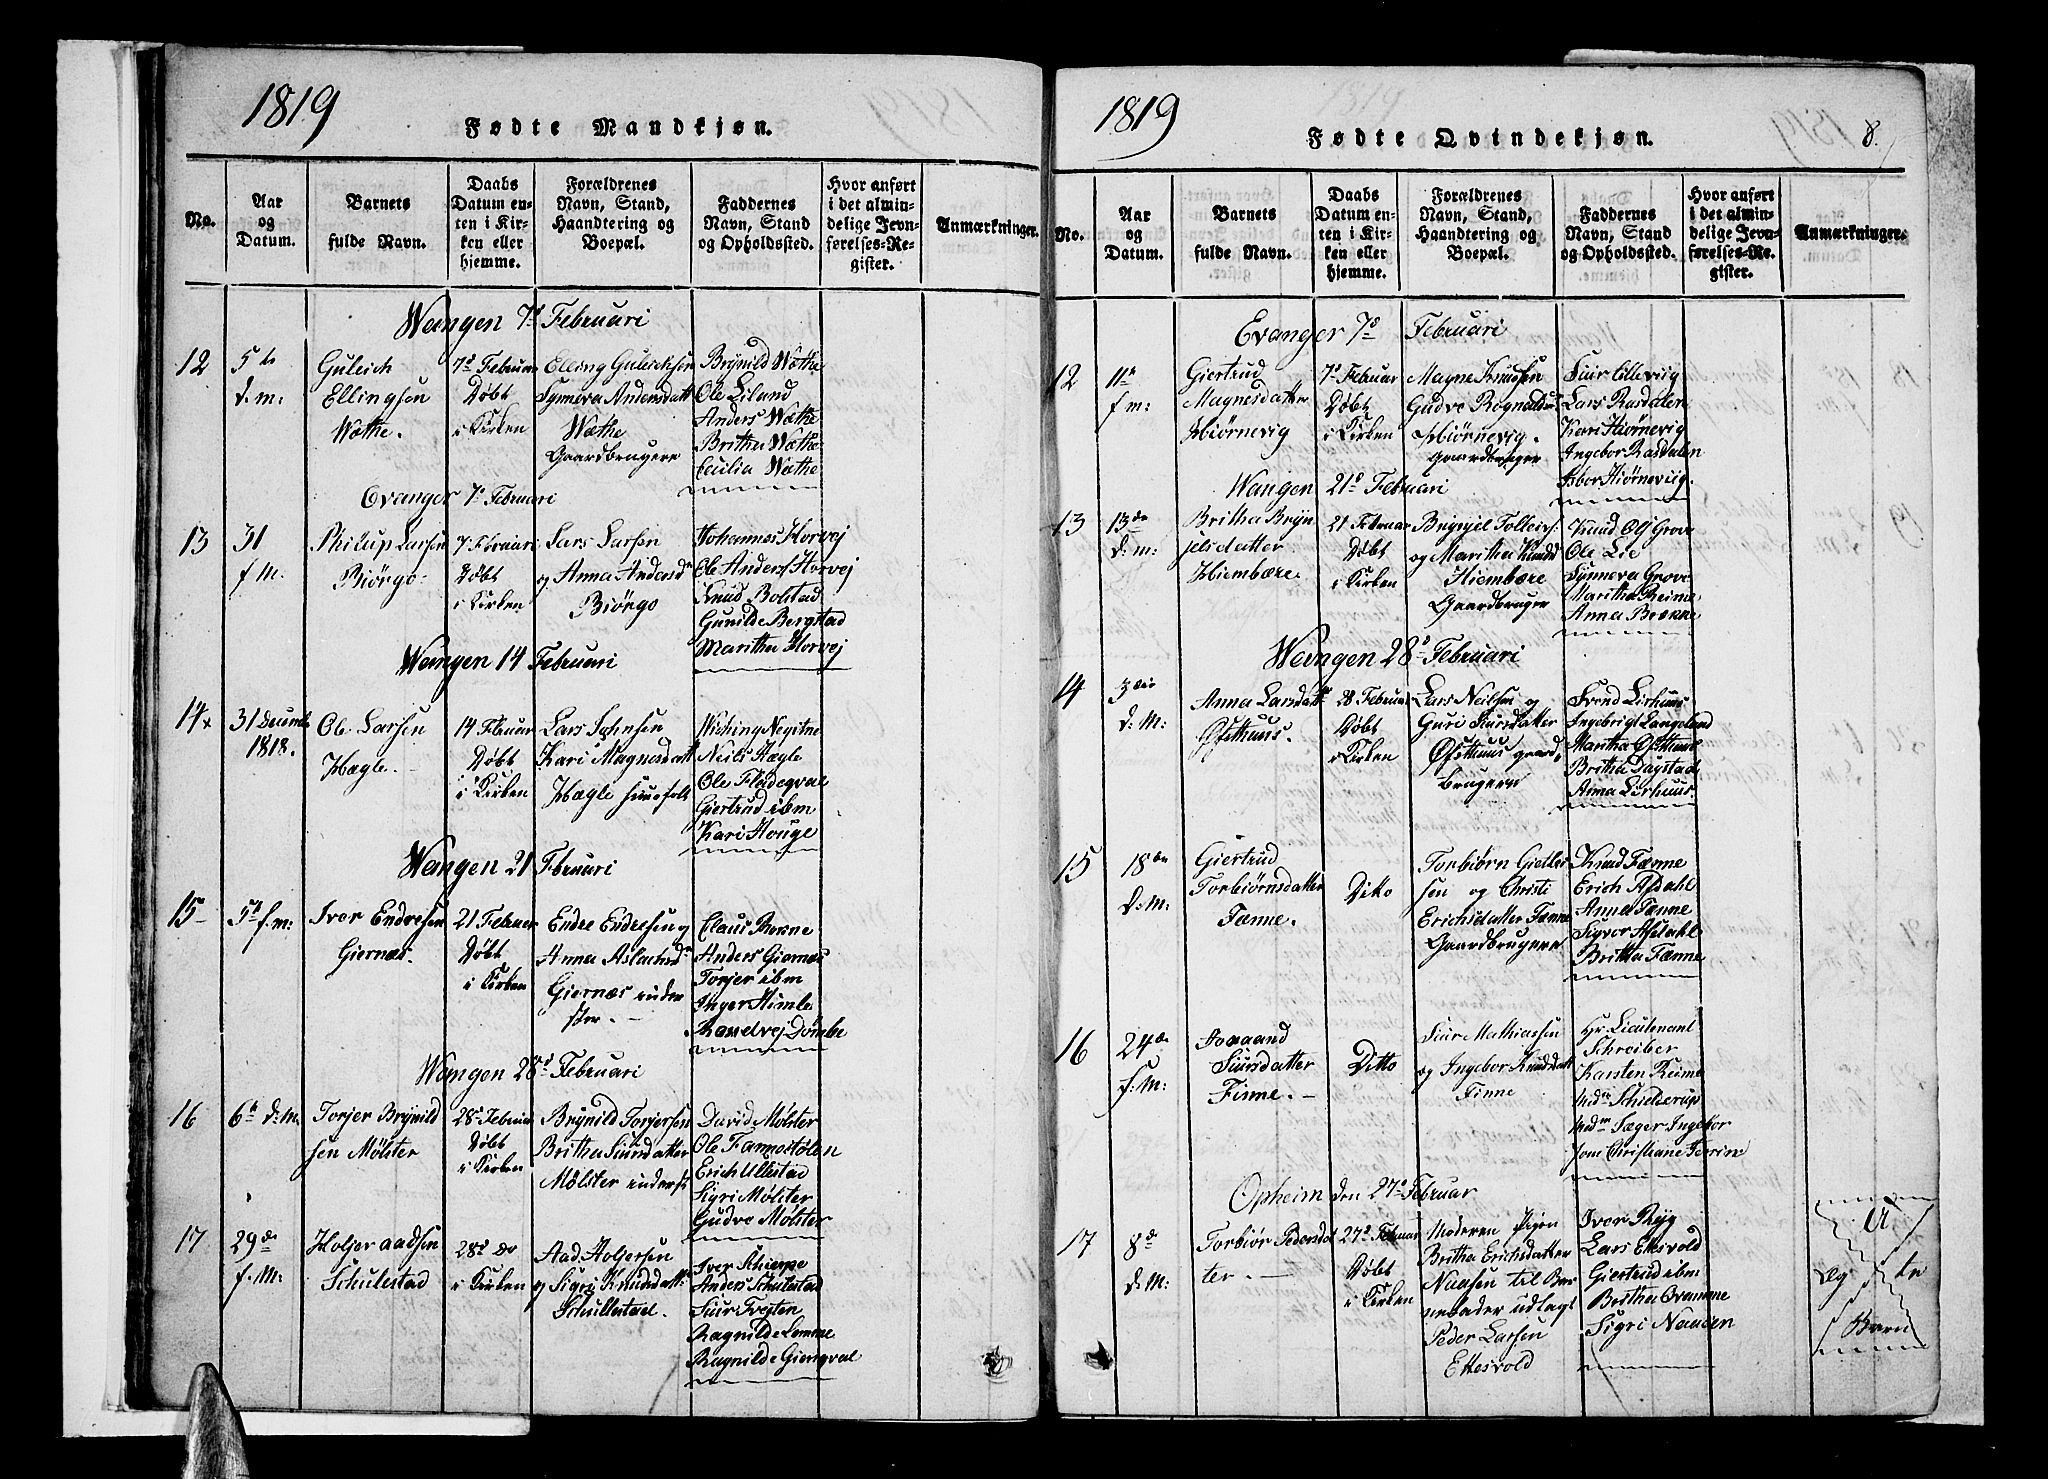 1819
Fødte Mandkjøn.
No.
Aar
og
Datum.
Barnets
fulde Navn.
Daabs
Datum en-
ten i Kir-
ken eller
hjemme.
Forældrenes
Navn, Stand,
Haandtering og
Boepæl.
Faddernes
Navn, Stand
og Opholdssted.
Hvor anført
i det almin-
delige Jevn-
førelses-Re-
gister.
Anmærkninger.
Wangen 7de Februari
12
5te
d. m:
Guleich
Ellingsen
Wæthe.
7de Februar
Døbt
i Kirken
Elling Gulichsen
Synneva Andersdatt
Wæthe
Gaardbrugere
Brynild Wæthe
Ole Lilund
Anders Wæthe
Britha Wæthe
Cecilia Wæthe
Evanger 7de Februari
13
31
f. M.
Philup Larsen
Biørgo.
7 Februari
Døbt
i Kirken
Lars Larsen
og Anna Andersdr
Biørgo
Johannes Horvej
Ole Anders Horvej
Knud Bolstad
Gunilde Bergstad
Maritha Horvej
Wangen 14 Februari
14x
31 Decemb
1818.
Ole Larsen
Hægle.
14 Februar
Døbt
i Kirken
Lars Johnsen
Kari Magnesdatt
Hægle huusfolk
Wiching
Neils Hægle
Ole Fladeqval
Giertrud ibm
Kari Houge
Wangen 21 Februari
15
5te f. m:
Iver Endresen
Giernæs.
21 Februar
Døbt
i Kirken
Endre Endresen og
Anna Aslachsdr
Giernæs inder
ster.
Claus Børsne
Anders Giernæs
Torjer ibm
Inger Himle
Randvej Dømbe
Wangen 28de Februari
16
6te d. M.
Torjer Brynild
sen Mølster
28de Februar
Døbt
i Kirken
Brynild Torjersen
Britha Siursdatter
Mølster inderst
David Mølster
Ole Fannestølen
Erich Ullestad
Sigri Mølster
Gudve Mølster
17
29de
f. M:
Holjer Aadsen
Schulestad
28de do
i Kirken
Aad Holjersen
og Sigri Knudsdatt
Schullestad.
Iver Schierpe
Anders Schulestad
Siur Tvejten
Ragnilde Lomme
Ragnilde Gierqval
1819
Fødte Qvindekjøn.
8.
No.
Aar
og
Datum.
Barnets
fulde Navn.
Daabs
Datum en-
ten i Kir-
ken eller
hjemme.
Forældrenes
Navn, Stand,
Haandtering og
Boepæl.
Faddernes
Navn, Stand
og Opholdssted.
Hvor anført
i det almin-
delige Jevn-
førelses-Re-
gister.
Anmærkninger.
Evanger 7de Februari
12
11te
f m:
Giertrud
Magnesdatter
Hiørnevig
7de Februar
Døbt
i Kirken
Magne Knudsen
Gudve Rognaldsd
Hiørnevig.
Gaardbruger
Siur Lillevig
Lars Rasdalen
Kari Hiørnevig
Ingebor Rasdalen
Hiørneviig.
Wangen 21de Februari
13
13de
d. m:
Britha Bryn
jelsdatter
Hiembære.
21 Februar
Døbt
i Kirken
Brynjel Tolleivs:
og Maritha Knudsd
Hiembære
Gaardbruger
Knud Ols Grove
Ole Lie
Synneva Grove
Maritha Reime
Anna Brække
Wangen 28de Februari
14
d: M.
Anna Larsdatt
Øfsthuus.
28 Februar
Døbt
i Kirken
Lars Neilsen og
Guri Siursdatter
Øfsthuus gaard
brugere
Svend Lirhuus
Ingebrigt Langeland
Maritha Øfsthuus
Britha Dagstad
Anna Lirhuus
15
18de
d. M:
Giertrud
Torbiørnsdatter
Fænne.
Ditto
Torbiørn Gietles
sen og Christi
Erichsdatter Fænne
Gaardbrugere
Knud Fænne
Erich Afdahl
Anna Fænne
Sigvor Afdahl
Britha Fænne
16
24de
f: M:
Aaagaand
Siursdatter
Finne.
Ditto
Siur Mathiassen
og Ingebor Knudsdatt
Finne
Hr. Lieutenant
Schreiber
Karsten Reime
Mdm Schielderup
Mdm Sæger Ingebor
Jom Christiane Ferrin
Opheim den 27de Februar
17
8de
d: M:
Torbiør Pedersdat
ter.
27de Februar
Døbt
i Kirken
Moderen Pigen
Britha Erichsdatter
Naasen til Bar
nefader udlagt
Peder Larsen
Ettesvold
Iver Rejg
Lars Ettesvold
Giertrud ibm
Britha Qvamme
Sigri Naaden
U
æg te
Barn